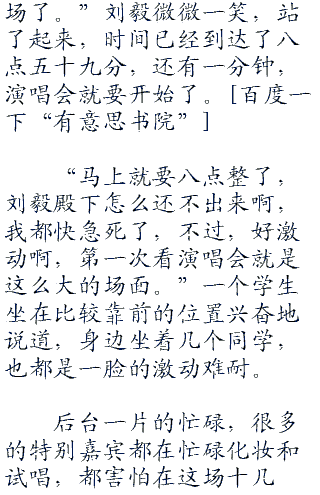 场了。”刘毅微微一笑，站
了起来，时间已经到达了八
点五十九分，还有一分钟，
演唱会就要开始了。[百度一
下“有意思书院”]
“马上就要八点整了，
刘毅殿下怎么还不出来啊，
我都快急死了，不过，好激
动啊，第一次看演唱会就是
这么大的场面。”一个学生
坐在比较靠前的位置兴奋地
说道，身边坐着几个同学，
也都是一脸的激动难耐。
后台一片的忙碌，很多
的特别嘉宾都在忙碌化妆和
试唱，都害怕在这场十几